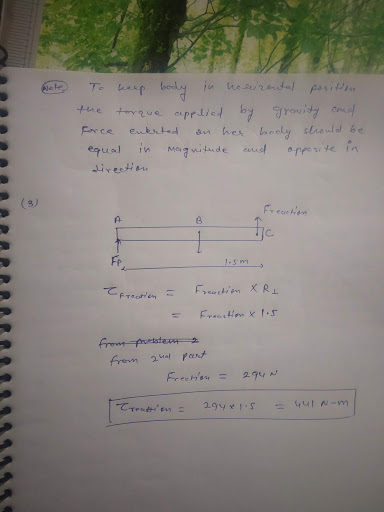 Note) To keep body in horizontal position
the torque applied by gravity and
Force exerted on her body should be
equal in magnitude and opposite in
direction
(3)
Freaction
A B
C
Fp
1.5m
τFreaction = Freaction × R⊥
= Freaction × 1.5
from problem 2
from 2nd part
Freaction = 294 N
τreaction = 294×1.5 = 441 N-m